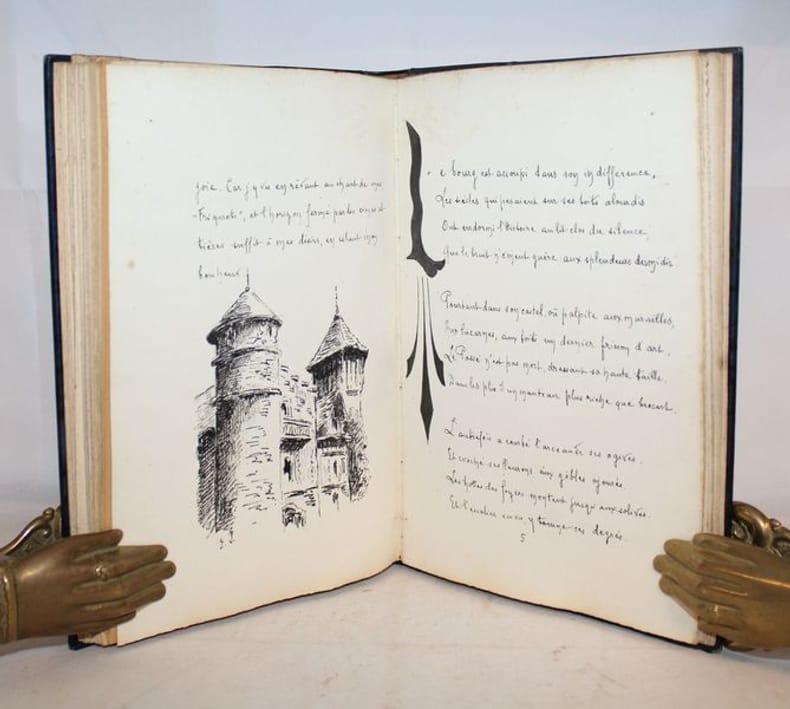 joie. Car j'y vis en rêvant au chant de mes
"Fréquots", et l'horizon fermé par les cimes al-
tières suffit à mes désirs, en créant mon
bonheur
Le bourg est accroupi dans son indifférence,
Les siècles qui pesaient sur ses toits alourdis
Ont endormi l'Histoire au lit clos du silence,
Que le bruit n'émeut guère aux splendeurs des midis
Pourtant dans son castel, où palpite aux murailles,
Aux lucarnes, aux toits un dernier frisson d'art,
Le Passé n'est pas mort, dressant sa haute taille
Dans les plis d'un manteau plus riche que brocart.
L'autrefois a courbé l'arc ses ogives.
Et accroché ses fleurons aux gâbles ajourés
Les hottes des foyers montent jusqu'aux solives.
Et l'escalier, y tourne ses degrés.
5